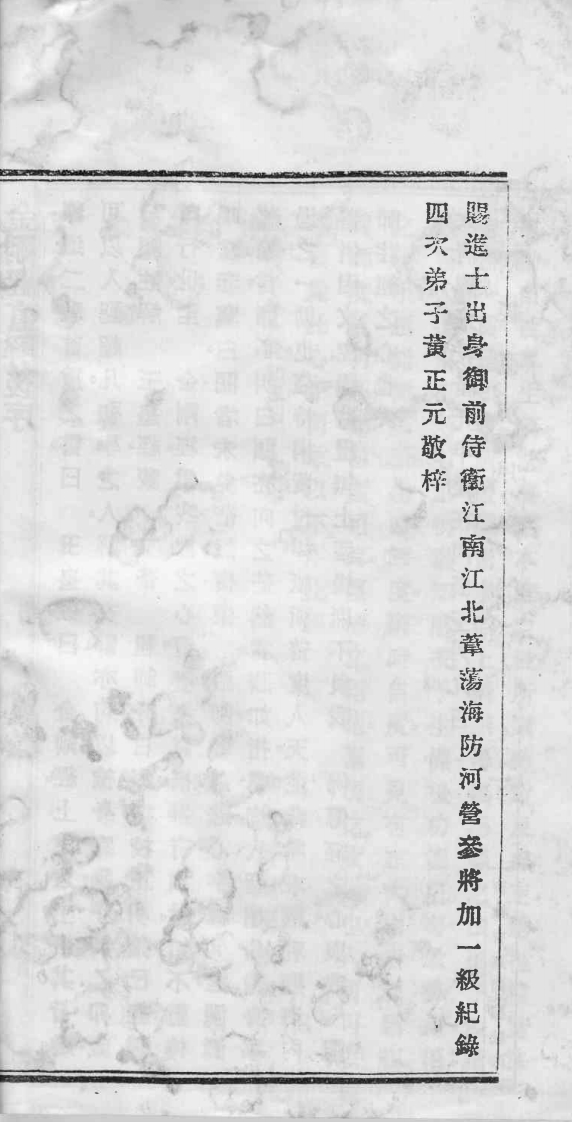 賜進士出身御前侍衞江南江北葦蕩海防河營叅將加一級紀錄
四次弟子黃正元敬梓